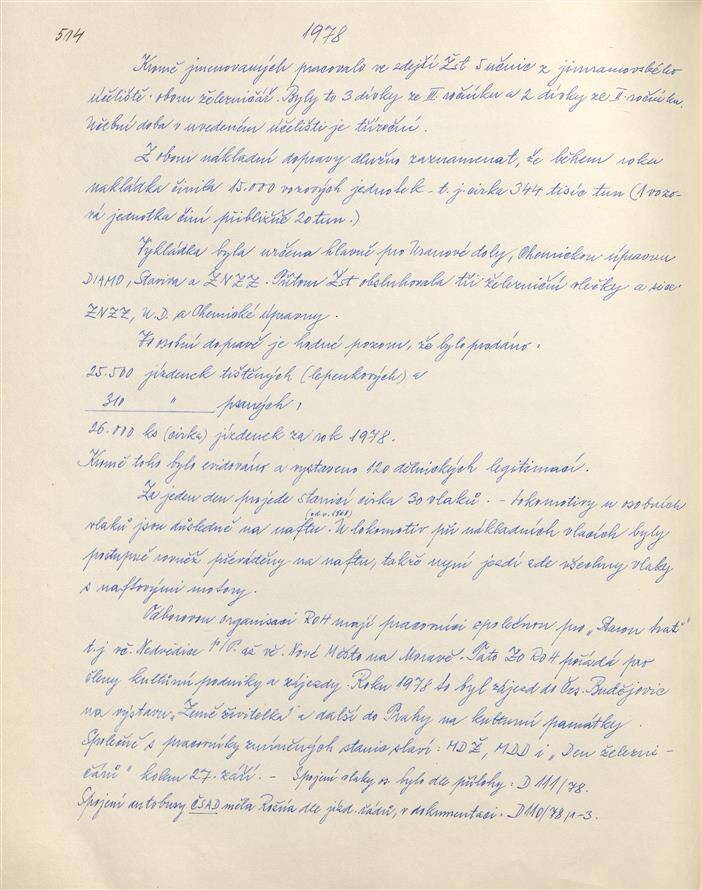 514
1978
Kromě jmenovaných pracovalo ve zdejší Žst 5 učnic z jimramovského
učeliště. obom železničář. Byly to 3 dívky ze III. ročníku a 2 dívky ze II. ročníku.
Učební doba v uvedeném učelišti je tříroční.
Z obom nákladní dopravy dlužno zaznamenat, že během roku
nakládka činila 15.000 vozových jednotek – t.j. cirka 344 tisíc tun (1 vozo-
vá jednotka činí přibližně 20 tun.)
Vykládka byla určena hlavně pro Uranové doly, Chemickou úpravnu
DIAMO, Staviva a ZNZZ. Přitom Žst obsluhovala tři železniční vlečky a sice
ZNZZ, U.D. a Chemické úpravny.
V osobní dopravě je hodné pozoru, že bylo prodáno.
25.500 jízdenek tištěných (lepenkových) a
310 " psaných,
26.000 ks (cirka) jízdenek za rok 1978.
Kromě toho bylo evidováno a vystaveno 120 dělnických legitimací.
Za jeden den projede stanicí cirka 30 vlaků. – Lokomotivy u osobních
(od r. 1968)
vlaků jsou důsledně na naftu. U lokomotiv při nákladních vlacích byly
postupně rovněž převáděny na naftu, takže nyní jezdí zde všechny vlaky
s naftovými motory.
Odborovou organisaci ROH mají pracovníci společnou pro „Starou trať"
t.j. vč. Nedvědice P/P. až vč. Nové Město na Moravě. Tato ZO ROH pořádá pro
členy kulturní podniky a zájezdy. Roku 1978 to byl zájezd do Čes. Budějovic
na výstavu „Země živitelka" a další do Prahy na kulturní památky.
Společně s pracovníky zmíněných stanic slaví: MDŽ, MDD i „Den železni-
čářů" kolem 27. září. – Spojení vlaky os. bylo dle přílohy. D 111/78.
Spojení autobusy ČSAD měla Rožná dle jízd. řádů, v dokumentaci. D 110/78/1-3.